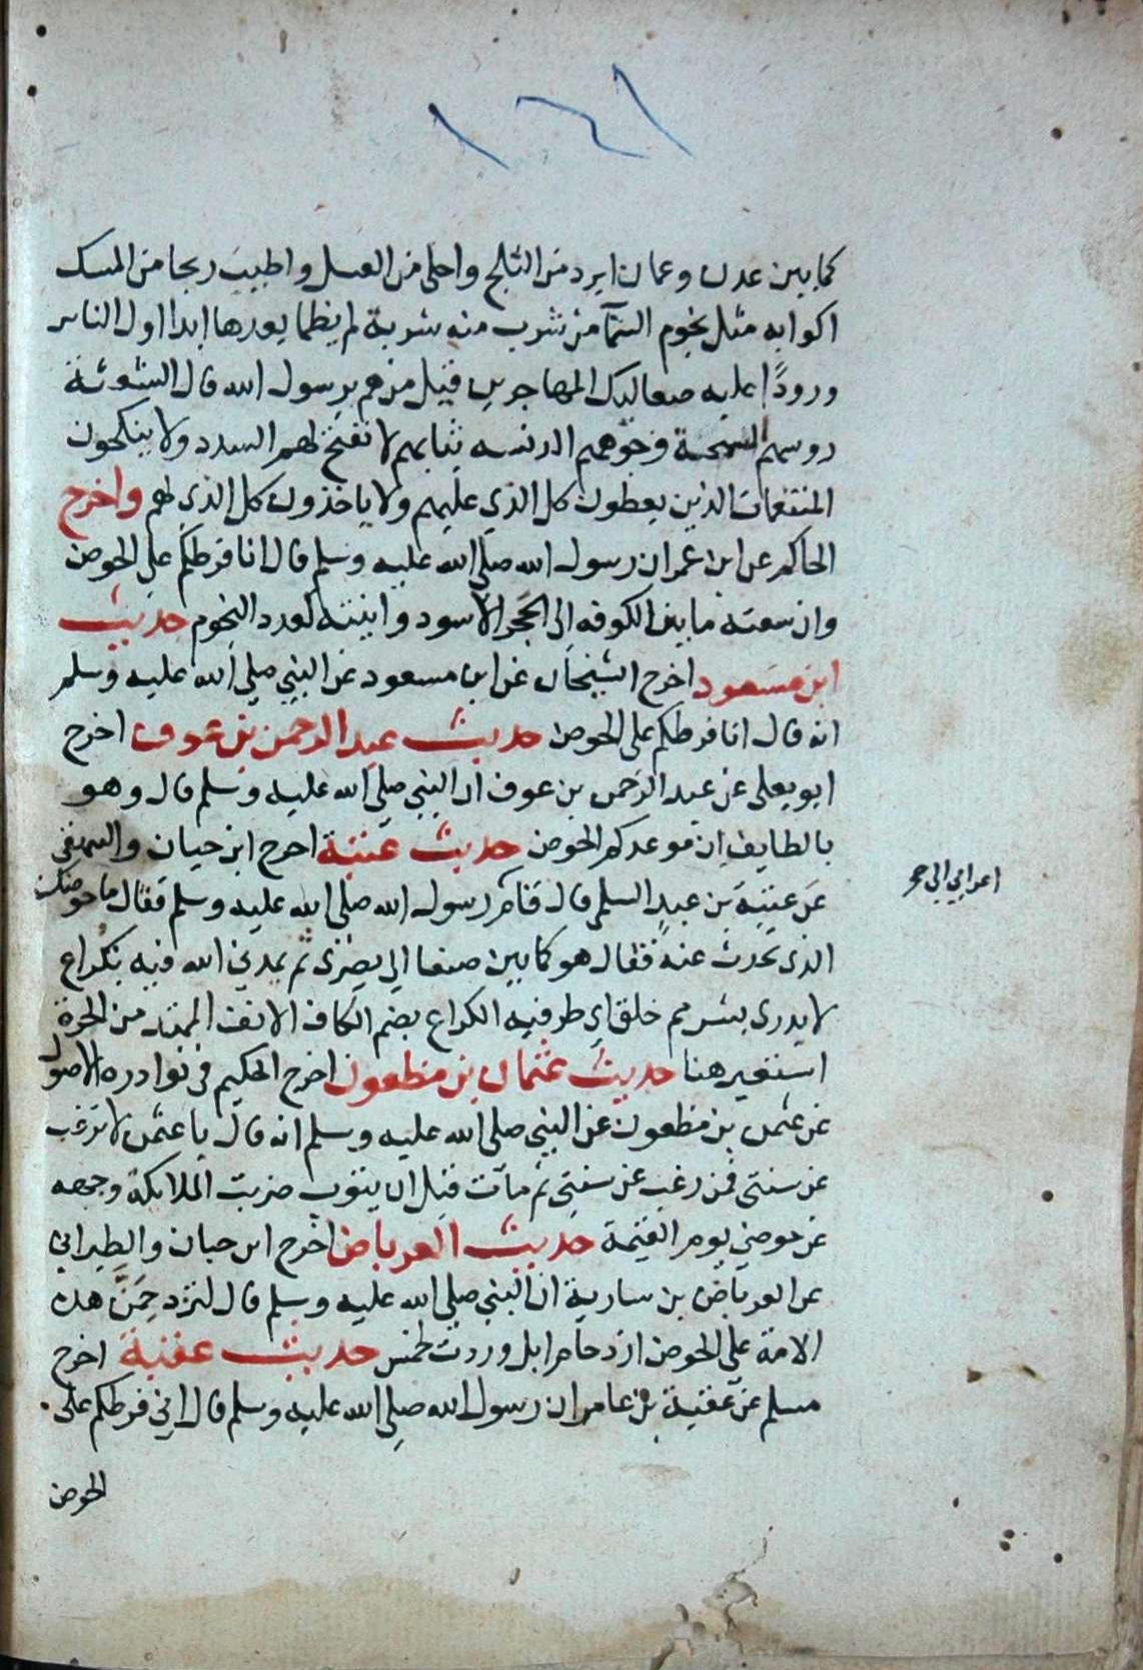 ١٦١
كما بين عدن وعمان ابرد من الثلج واحلى من العسل واطيب ريحا من المسك
اكوابه مثل نجوم السمآ من شرب منه شربة لم يظما بعدها ابدا اول الناس
ورودًا عليه صعاليك المهاجرين قيل من هم يرسول الله قال الشعثة
روسهم الشحبة وجوههم الدنسه ثيابهم لا تفتح لهم السدد ولا ينكحون
المنتعمات الذين يعطون كل الذي عليهم ولا ياخذون كل الذي لهم واخرج
الحاكم عن ابن عمر ان رسول الله صلى الله عليه وسلم قال انا فرطكم على الحوض
وان سعته ما بين الكوفه الى الحجر الاسود وانيته كعدد النجوم حديث
ابن مسعود اخرج الشيخان عن ابن مسعود عن النبي صلى الله عليه وسلم
انه قال انا فرطكم على الحوض حديث عبد الرحمن بن عوف اخرج
ابو يعلى عن عبد الرحمن بن عوف ان النبي صلى الله عليه وسلم قال وهو
بالطايف ان موعدكم الحوض حديث عتبة اخرج ابن حبان والبيهقي
عن عتبة بن عبدٍ السلمي قال قام رسول الله صلى الله عليه وسلم فقال ما حوضك
اعرابي الى
الذي تحدث عنه فقال هو كما بين صنعا الى بصرى ثم يمدني الله فيه بكراع
لا يدري بشر مم خلق اي طرفيه الكراع بضم الكاف الانف الممتد من الحرة
استعير هنا حديث عثمان بن مظعون اخرج الحكيم في نوادره الاصول
عن عثمن بن مظعون عن النبي صلى الله عليه وسلم انه قال يا عثمن لا ترغب
عن سنتي فمن رغب عن سنتي ثم مات قبل ان يتوب ضربت الملايكة وجهه
عن حوضي يوم القيمة حديث العرباض اخرج ابن حبان والطبراني
عن العرباض بن سارية ان النبي صلى الله عليه وسلم قال لتزدحمَنَّ هذه
الامة على الحوض ازدحام ابل وردت لخمس حديث عقبة اخرج
مسلم عن عقبة بن عامر ان رسول الله صلى الله عليه وسلم قال اني فرطكم على
الحوض